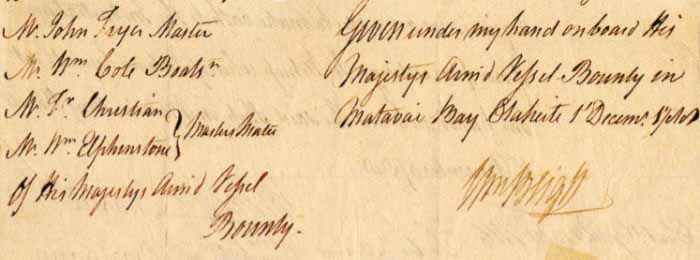 Mr. John Fryer Master
Mr. Wm. Cole Boatsn
Mr. Fr. Christian
Mr. Wm. Elphenstone } Masters Mates
Of His Majestys Armd Vessel
Bounty.
Given under my hand on board His
Majestys Armd Vessel Bounty in
Matavai Bay Otaheite 1st Decemr. 1788
Wm Bligh